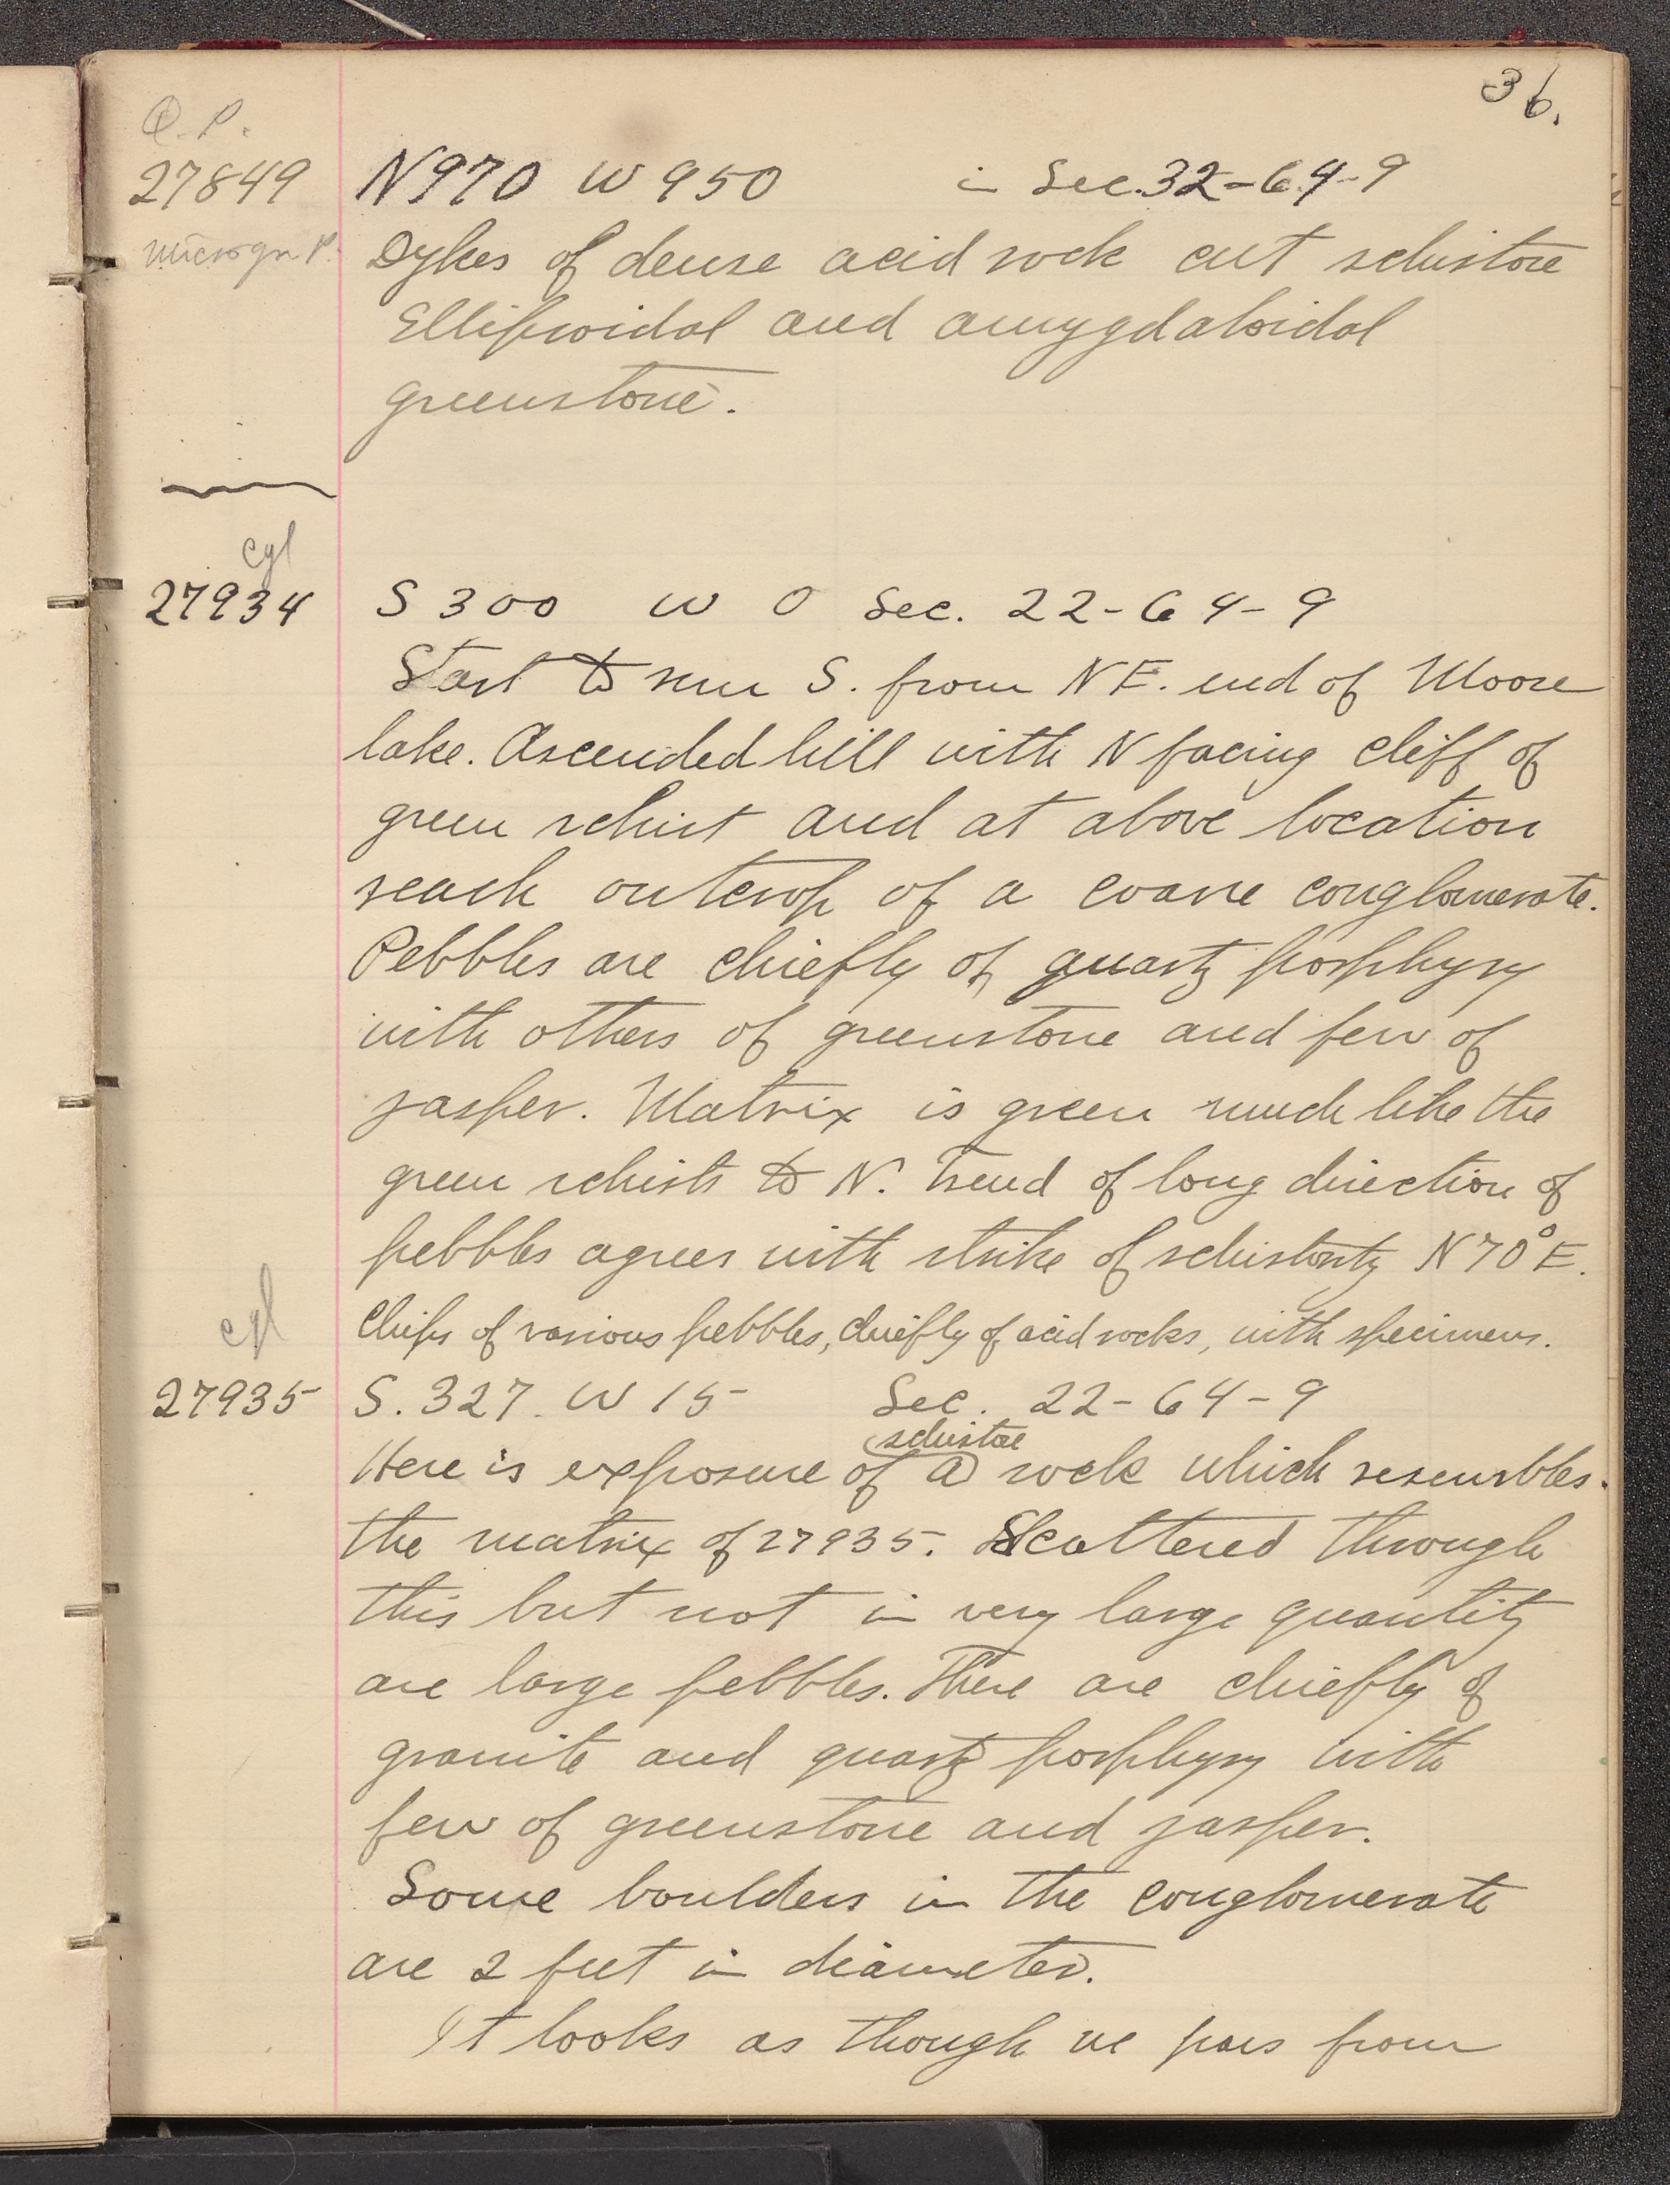 36.
Q.P.
27849 N970 W 950 in Sec. 32-64-9
microgr P. Dykes of dense acid rock cut schistose
Ellipsoidal and amygdaloidal
greenstone.
cgl
27934 S 300 W 0 Sec. 22-64-9
Start to run S. from NE. end of Moose
lake. Ascended hill with N facing cliff of
green schist and at above location
reach outcrop of a coarse conglomerate.
Pebbles are chiefly of quartz porphyry
with others of greenstone and few of
jasper. Matrix is green much like the
green schists to N. Trend of long direction of
pebbles agrees with strike of schistosity N70°E.
cgl
Chips of various pebbles, chiefly of acid rocks, with specimens.
27935 S. 327. W 15 Sec. 22-64-9
schistose
Here is exposure of a rock which resembles
the matrix of 27935. Scattered through
this but not in very large quantity
are large pebbles. These are chiefly of
granite and quartz porphyry with
few of greenstone and jasper.
Some boulders in the conglomerate
are 2 feet in diameter.
It looks as though we pass from